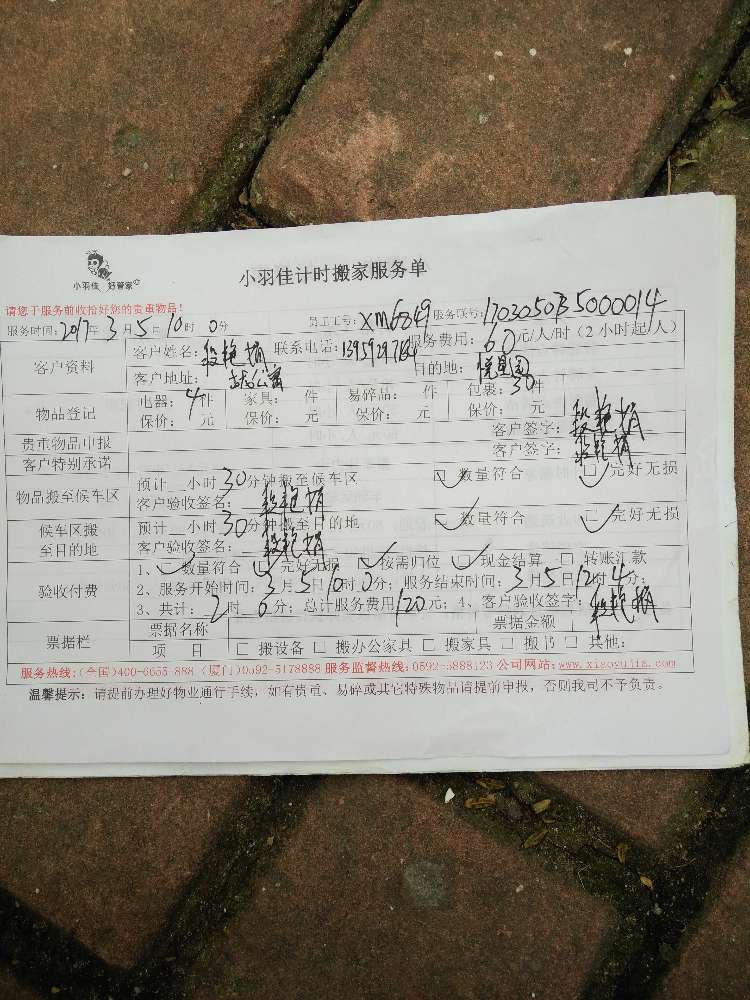 小羽佳 好管家
小羽佳计时搬家服务单
请您于服务前收拾好您的贵重物品!
服务时间:2017年3月5日10时0分 员工工号:XM6849 服务联号:170305035000014
客户资料
客户姓名:段艳娟 联系电话: 服务费用:60元/人/时(2小时起/人)
客户地址: 公寓 目的地:悦星园
物品登记
电器:4件 家具: 件 易碎品: 件 包裹:30件
保价: 元 保价: 元 保价: 元 保价: 元
贵重物品申报 客户签字:段艳娟
客户特别承诺 客户签字:段艳娟
物品搬至候车区
预计 小时30分钟搬至候车区 数量符合 完好无损
客户验收签名:段艳娟
候车区搬至目的地
预计 小时30分钟搬至目的地 数量符合 完好无损
客户验收签名:段艳娟
验收付费
1、数量符合 完好无损 按需归位 现金结算 转账汇款
2、服务开始时间:3月5日10时0分;服务结束时间:3月5日12时 分;
3、共计:2时0分;总计服务费用120元;4、客户验收签字:段艳娟
票据栏
票据名称 票据金额
项 目 搬设备 搬办公家具 搬家具 搬书 其他:
服务热线:(全国)400-6655-888 (厦门)0592-5178888 服务监督热线:0592-5888123 公司网站:www.xiaoyujia.com
温馨提示:请提前办理好物业通行手续,如有贵重、易碎或其它特殊物品请提前申报,否则我司不予负责。